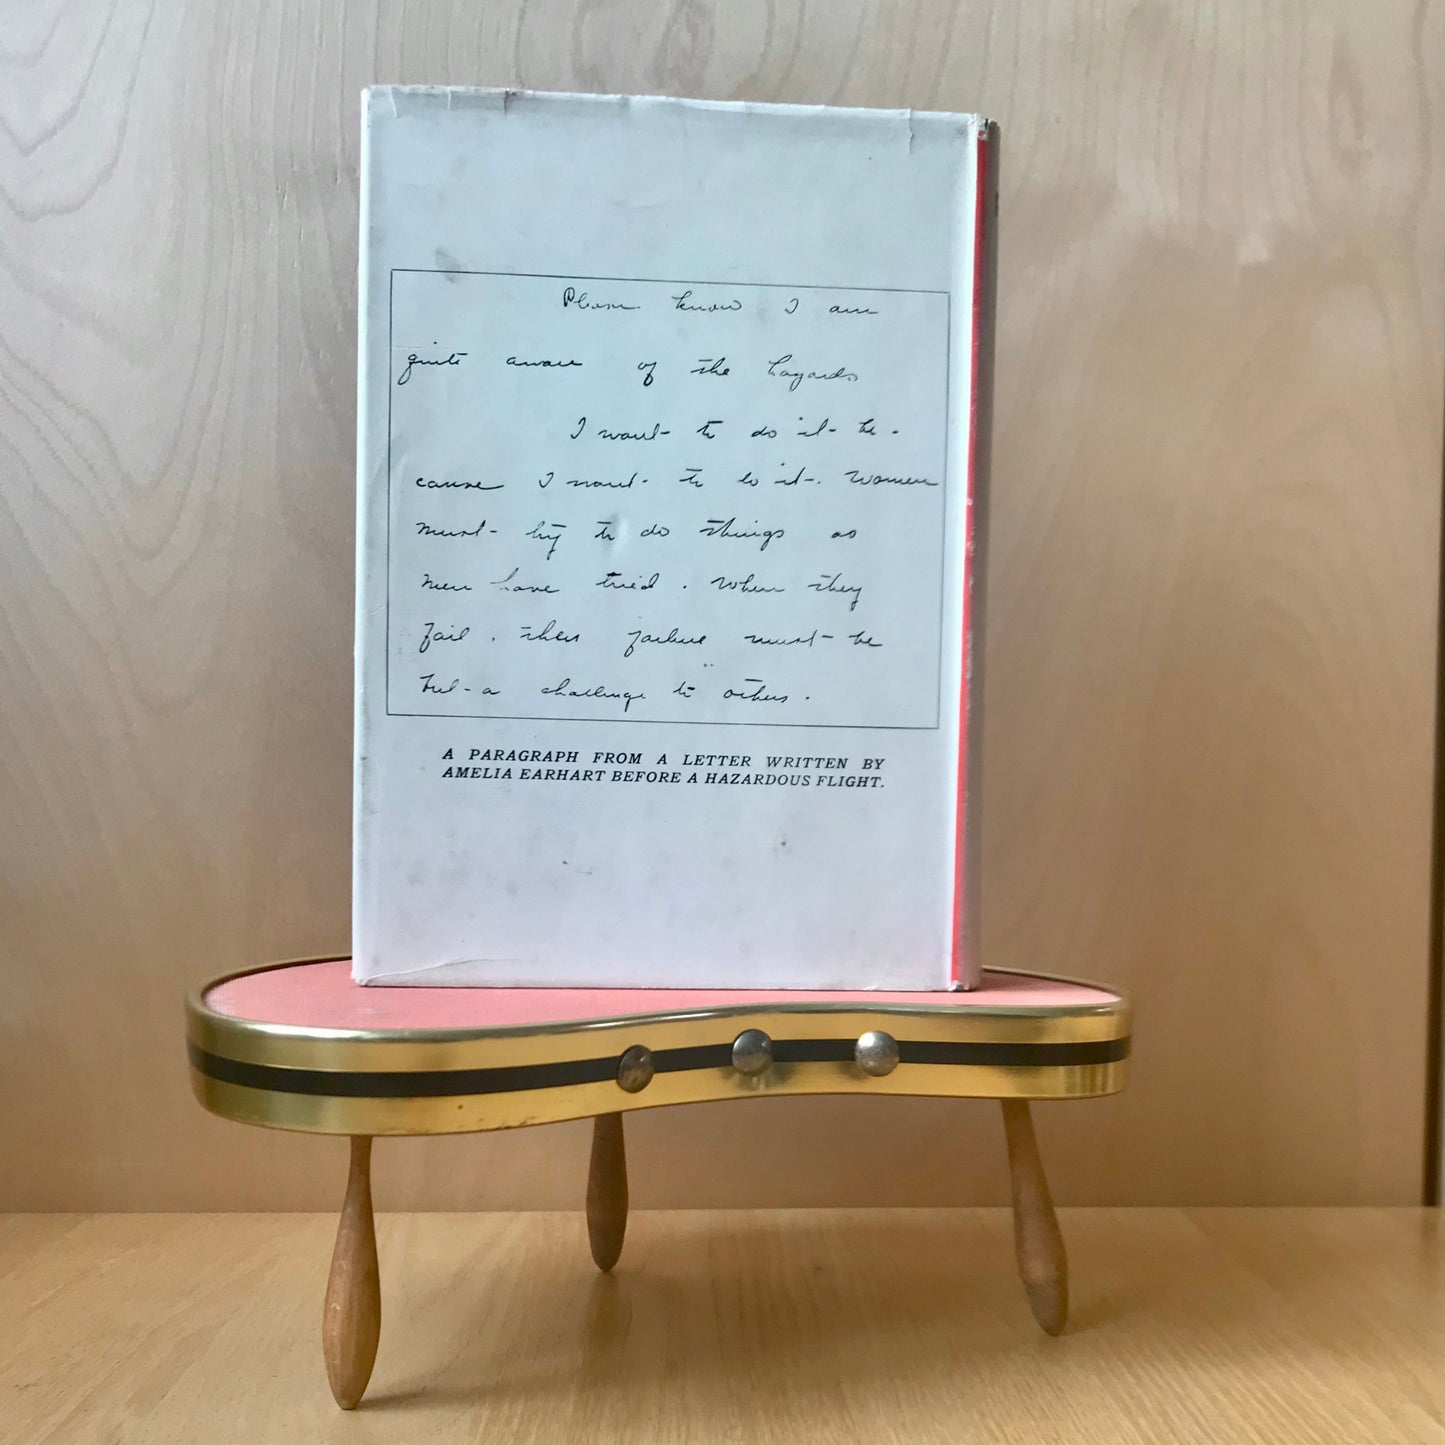 Please know I am
quite aware of the hazards
I want to do it be-
cause I want to do it. Women
must try to do things as
men have tried. When they
fail, their failure must be
but a challenge to others.
A PARAGRAPH FROM A LETTER WRITTEN BY
AMELIA EARHART BEFORE A HAZARDOUS FLIGHT.